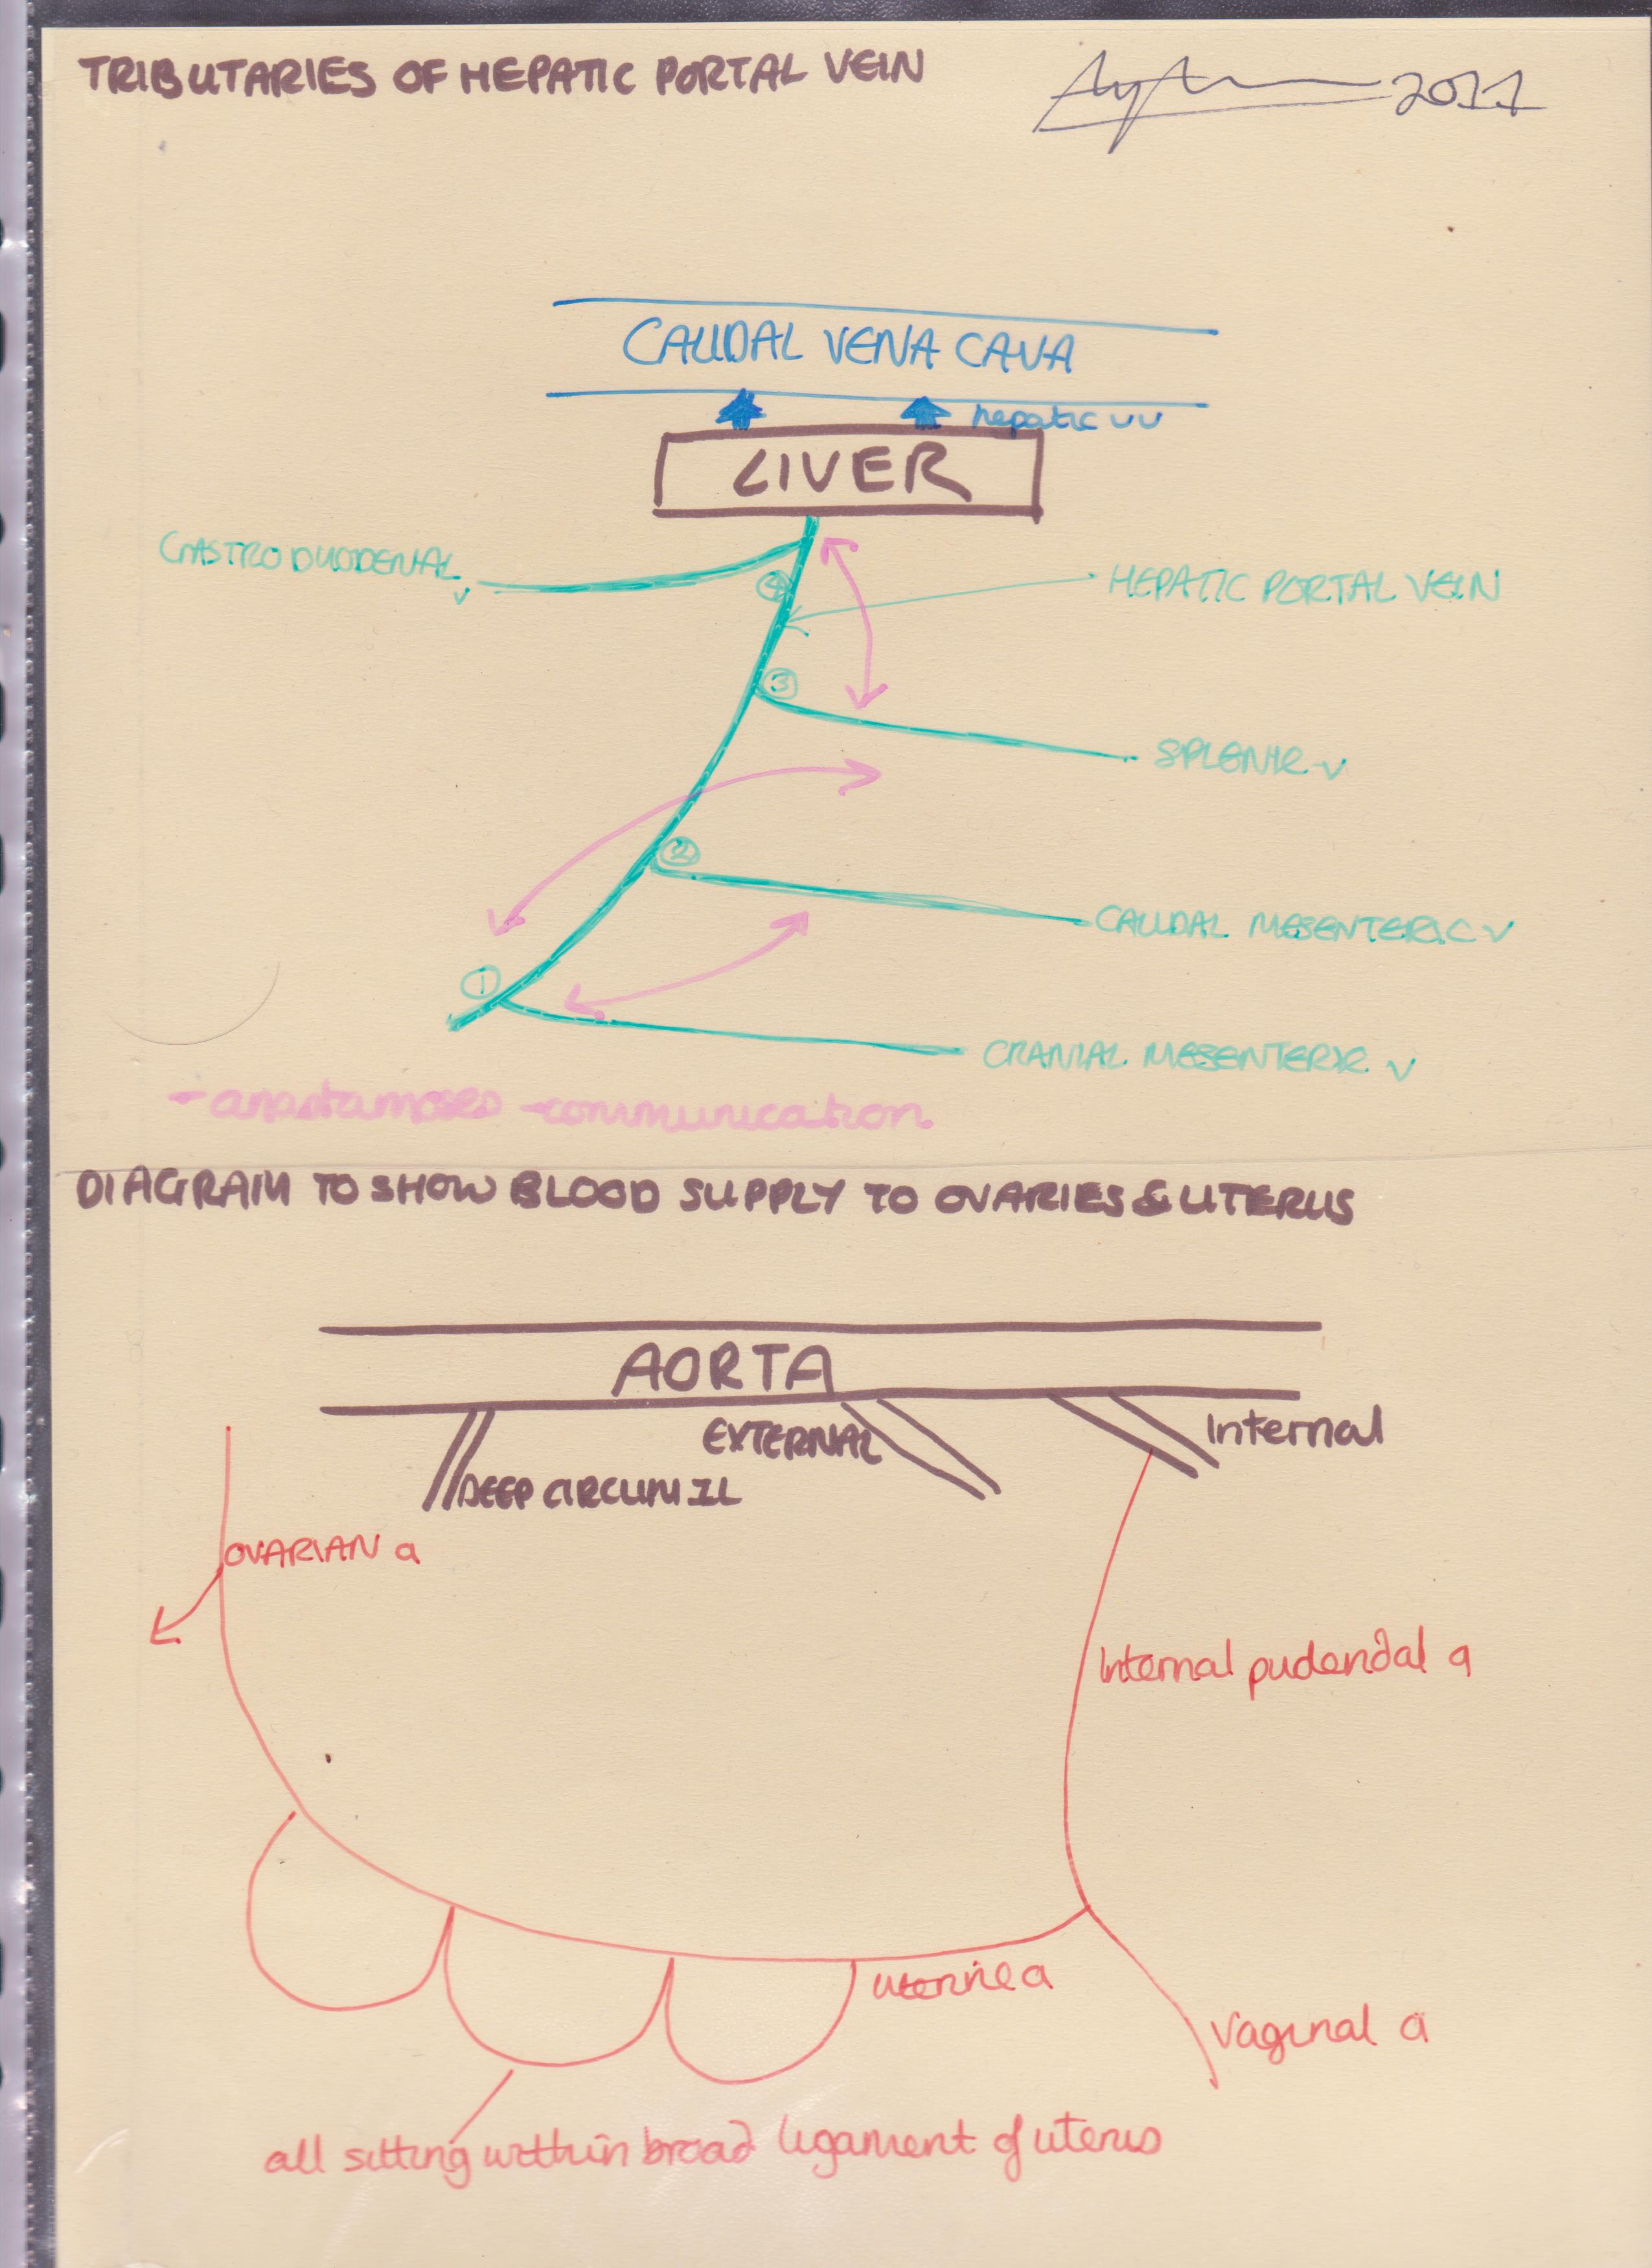 TRIBUTARIES OF HEPATIC PORTAL VEIN
2011
CAUDAL VENA CAVA
hepatic vv
LIVER
GASTRODUODENAL v
④
HEPATIC PORTAL VEIN
③
SPLENIC v
②
CAUDAL MESENTERIC v
①
CRANIAL MESENTERIC v
- anastamoses - communication
DIAGRAM TO SHOW BLOOD SUPPLY TO OVARIES & UTERUS
AORTA
EXTERNAL
Internal
DEEP CIRCUM IL
OVARIAN a
Internal pudendal a
uterine a
Vaginal a
all sitting within broad ligament of uterus